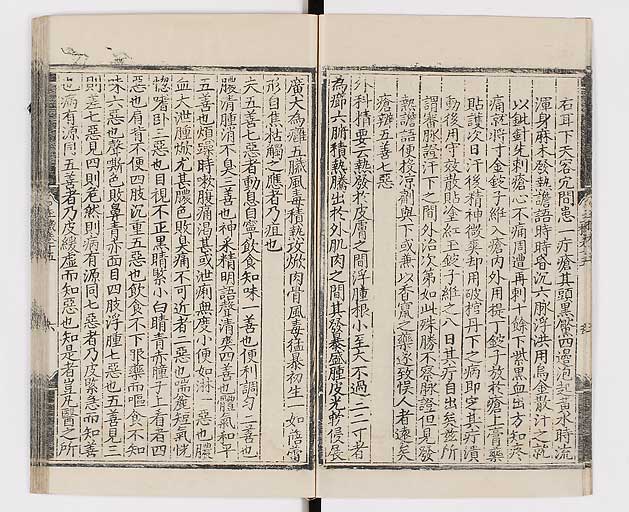 石耳下天容穴間患一疔瘡其頭黑靨四邊泡起黃水時流
渾身麻木發熱讝語時時昏沉六脉浮洪用烏金散汗之就
以針刺瘡心不痛周遭再刺十餘下紫黑血出方知疼
痛就將寸金錠子維入瘡內外用提丁錠子放於瘡上膏藥
貼護次日汗後精神微爽却用破棺丹下之病即定其疔潰
動後用守效散貼塗紅玉錠子維之八日其疔自出矣茲所
謂審脉證汗下之間外治次第如此殊勝不察脉證但見發
熱讝語便投凉劑與下或兼以香竄之藥遂致悞人者遠矣
瘡瘍五善七惡
外科精要云熱發於皮膚之間浮腫根小至大不過二三寸者
為癤六腑積熱騰出於外肌肉之間其發暴盛腫皮光軟侵展
廣大為癰五臟風毒積熱攻焮肉骨風毒猛暴初生一如㾦㿔
形自焦枯觸之應者乃疽也
夫五善七惡者動息自寧飲食知味一善也便利調勻二善也
膿清腫消不臭三善也神采精明語聲清爽四善也體氣和平
五善也煩躁時嗽腹痛渴甚或泄痢無度小便如淋一惡也膿
血大泄腫焮尤甚膿色敗臭痛不可近者二惡也喘麄短氣恍
惚嗜卧三惡也目視不正黑睛緊小白睛青赤瞳子上看者四
惡也肩背不便四肢沉重五惡也飲食不下服藥而嘔食不知
味六惡也聲嘶色敗鼻青赤面目四肢浮腫七惡也五善見三
則差七惡見四則危然則病有源同七惡者乃皮緊急而知善
也病有源同五善者乃皮緩虛而知惡也知是者豈凡醫之所